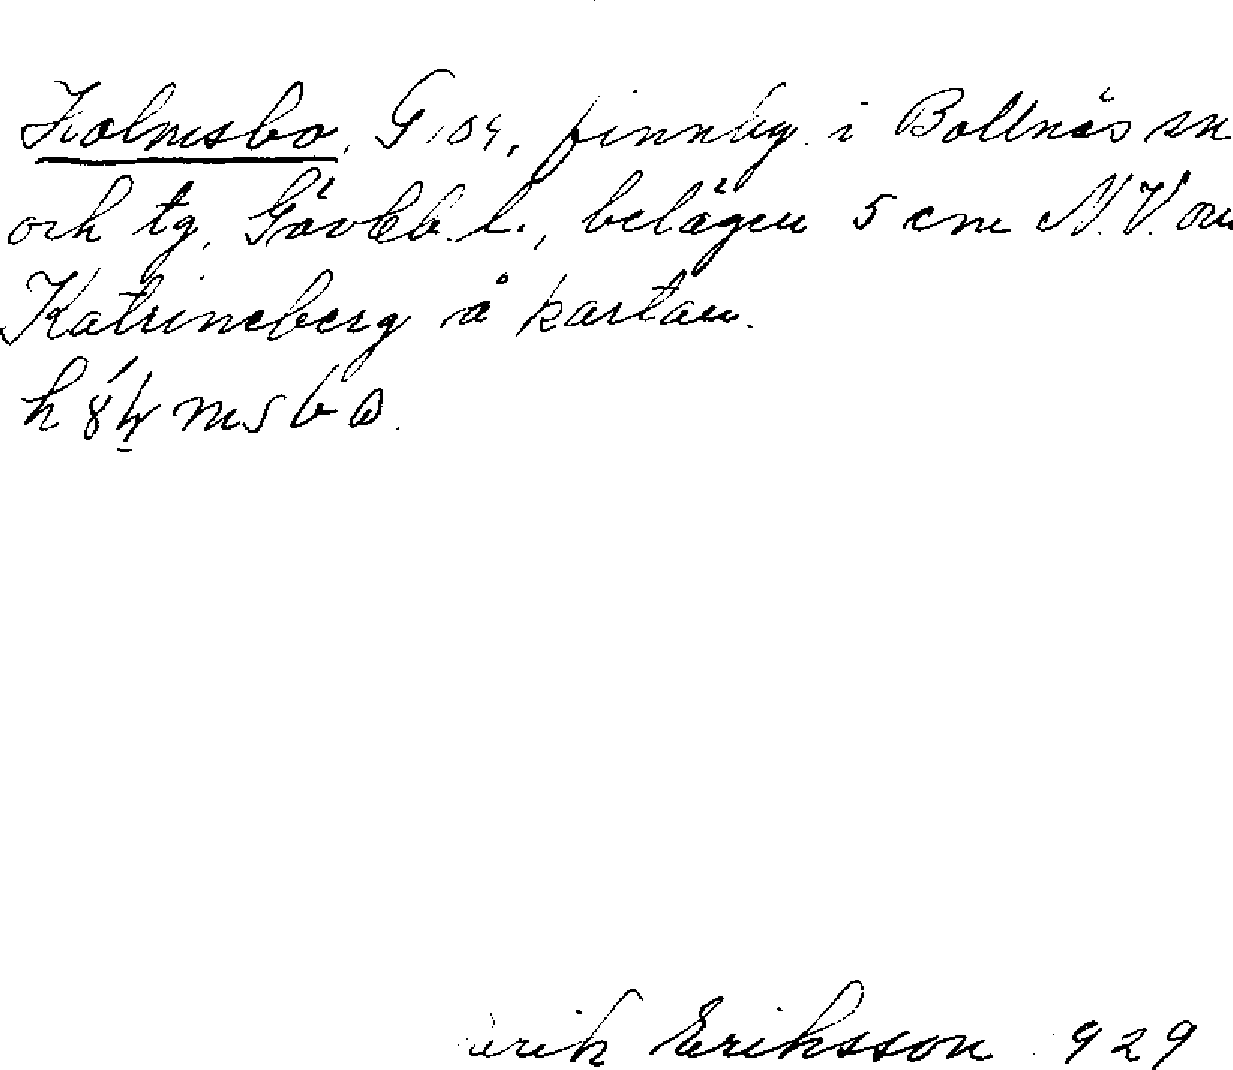 Holmsbo, G 104, finnby i Bollnäs sn
och tg, Gävleb. l., belägen 5 cm N.V. om
Katrineberg å kartan.
Erik Eriksson 929